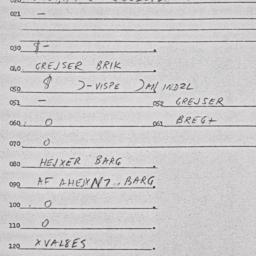 021 –
030 $-
040 GREJSER BRIK
050 $ )-VISPE
051 – 052 GREJSER
060 0 061 BREG+
070 0
080 HEJXER BARG
090 AF BARG
100 0
110 0
120 XVAL8ES